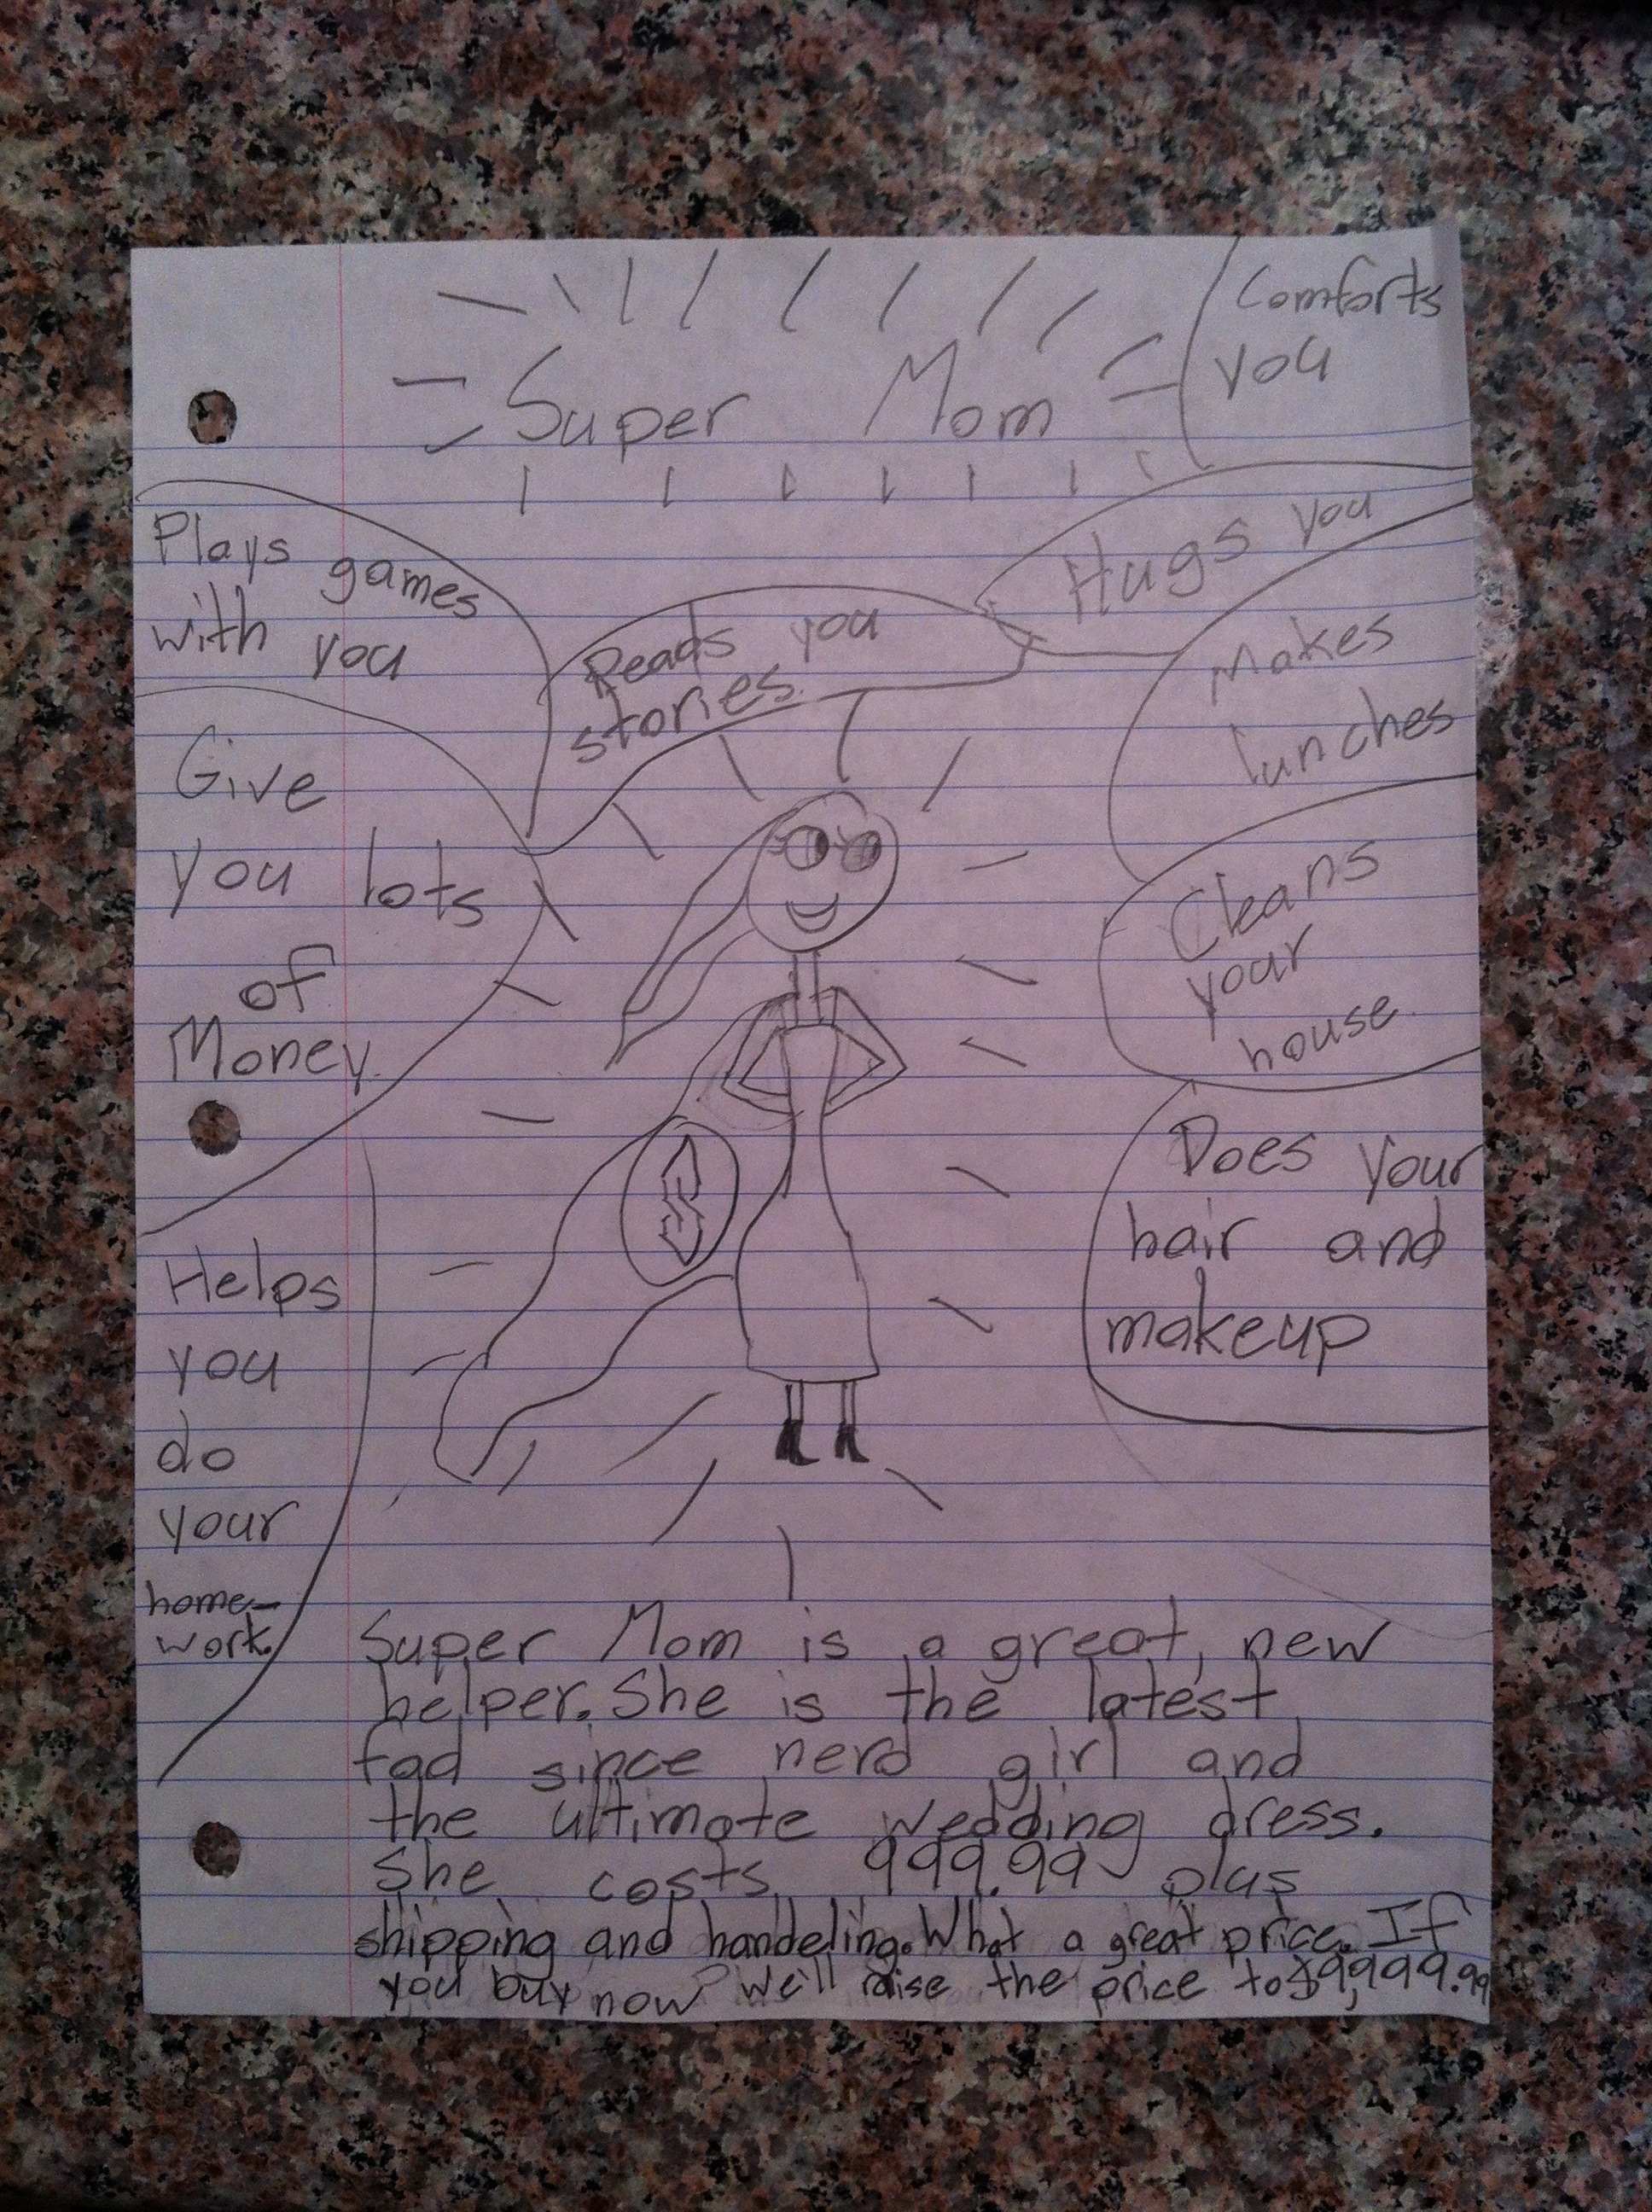 Super Mom
Comforts
you
Plays games
with you
Reads you
stories.
Hugs you
Makes
lunches
Give
you lots
of
Money.
Cleans
your
house.
Does your
hair and
makeup
Helps
you
do
your
home-
work.
S
Super Mom is a great, new
helper. She is the latest
fad since nerd girl and
the ultimate wedding dress.
She costs 999.99 plus
shipping and handeling. What a great price. If
you buy now we'll raise the price to $9,999.99